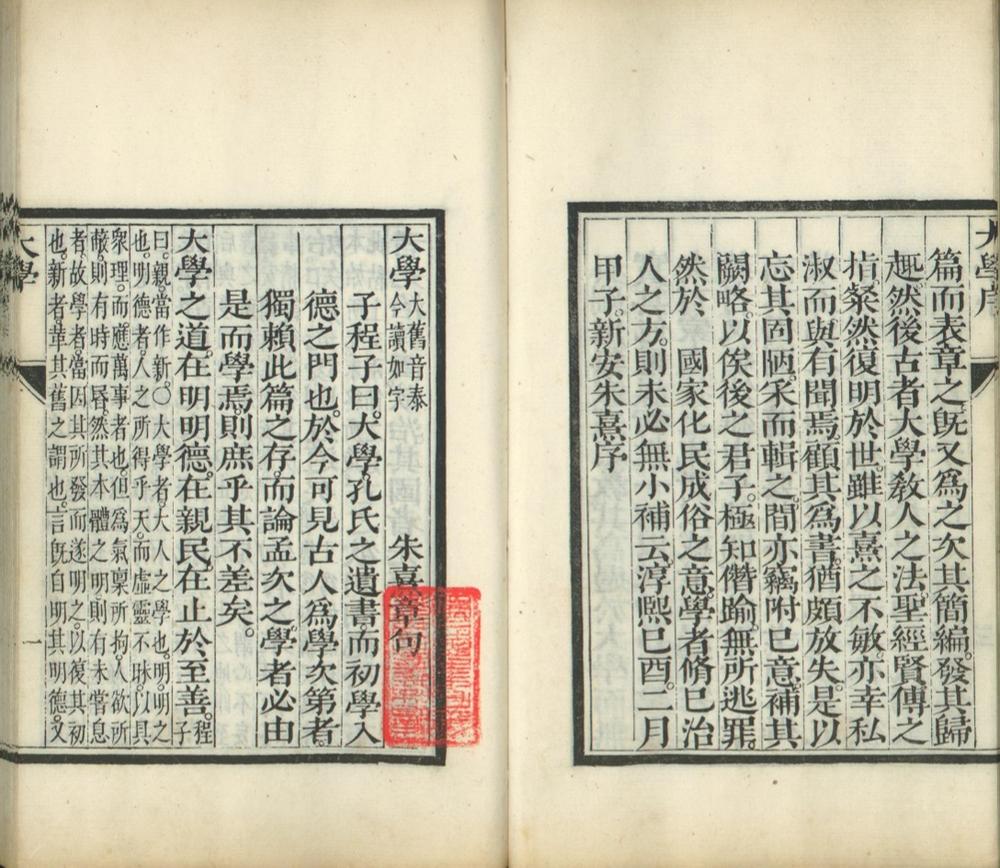 大學序
篇而表章之既又爲之次其簡編。發其歸
趣。然後古者大學教人之法。聖經賢傳之
指。粲然復明於世。雖以熹之不敏。亦幸私
淑而與有聞焉。顧其爲書。猶頗放失。是以
忘其固陋。采而輯之。閒亦竊附己意。補其
闕略。以俟後之君子。極知僭踰。無所逃罪。
然於 國家化民成俗之意。學者脩己治
人之方。則未必無小補云。淳熙己酉。二月
甲子。新安朱熹序
大學 大舊音泰
今讀如字 朱熹章句
子程子曰。大學。孔氏之遺書而初學入
德之門也。於今可見古人爲學次第者。
獨賴此篇之存。而論孟次之。學者必由
是而學焉。則庶乎其不差矣。
大學之道。在明明德。在親民。在止於至善。 程子
曰。親。當作新。○大學者。大人之學也。明。明之
也。明德者。人之所得乎天。而虛靈不昧。以具
衆理。而應萬事者也。但爲氣稟所拘。人欲所
蔽。則有時而昬。然其本體之明。則有未嘗息
者。故學者。當因其所發而遂明之。以復其初
也。新者。革其舊之謂也。言旣自明其明德。又
大學
一